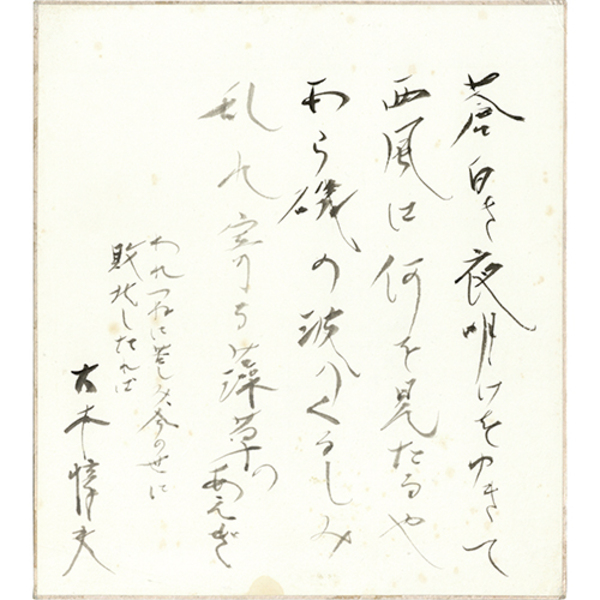 蒼白き夜明けをゆきて
西風は何を見たるや
あら磯の波のくるしみ
乱れ寄る藻草のあえぎ
われつねに苦しみ今のせに
敗北したれば
大木惇夫